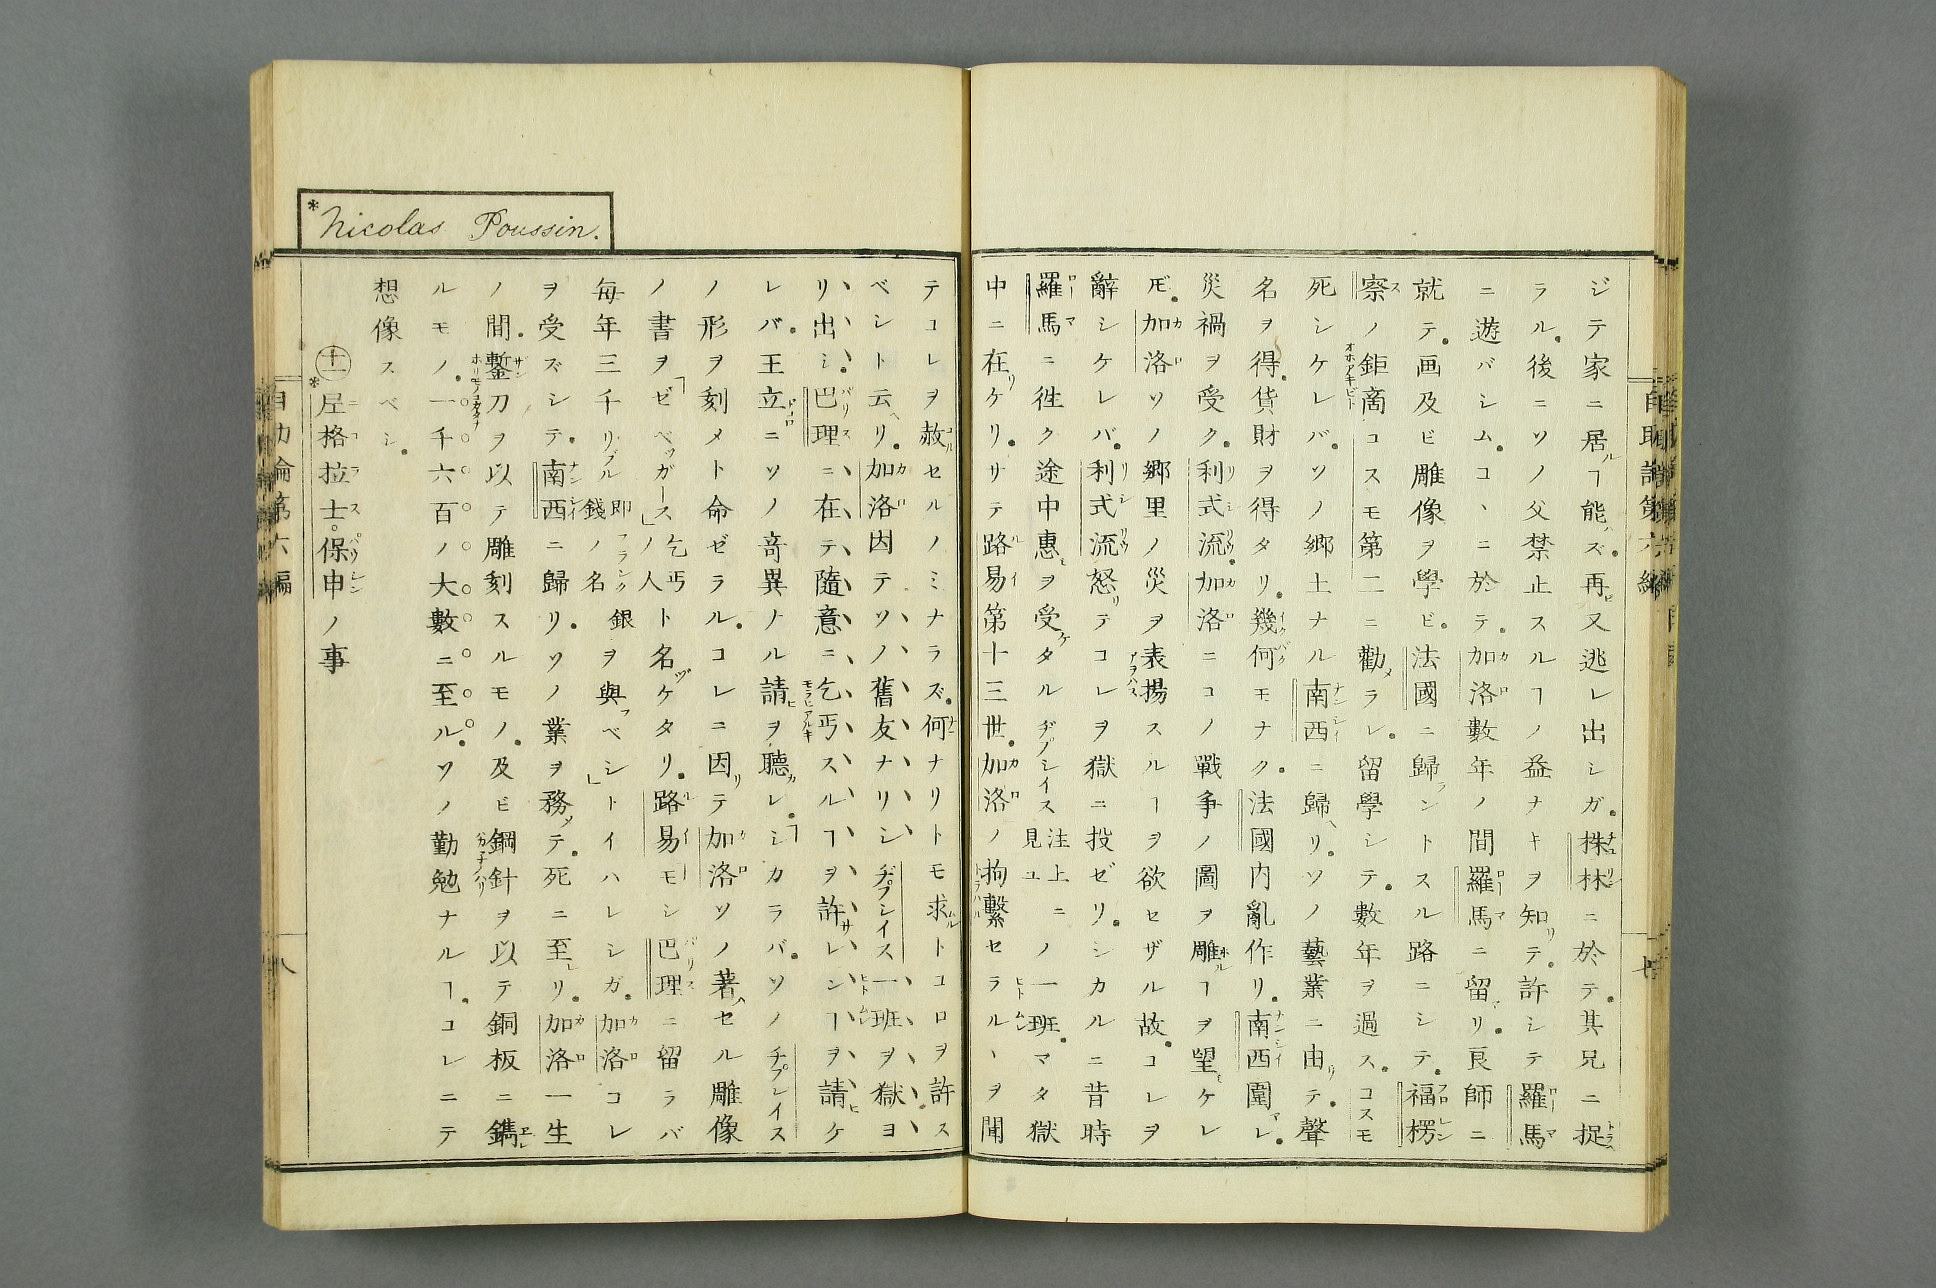 ジテ家ニ居ルヿ能ハズ。再ビ又逃レ出シガ。株林ニ於テ。其兄ニ捉
ラル。後ニソノ父禁止スルヿノ益ナキヲ知リテ。許シテ羅馬
ニ遊バシム。コヽニ於テ。加洛數年ノ間羅馬ニ留リ。良師ニ
就テ。画及ビ雕像ヲ學ビ。法國ニ歸ラントスル路ニシテ。福楞
察ノ鉅商コスモ第二ニ勸メラレ。留學シテ。數年ヲ過ス。コスモ
死シケレバ。ソノ郷土ナル南西ニ歸ヘリ。ソノ藝業ニ由リテ。聲
名ヲ得。貨財ヲ得タリ。幾何モナク。法國内亂作リ。南西圍マレ。
災禍ヲ受ク。利式流。加洛ニコノ戰爭ノ圖ヲ雕ルヿヲ望ミケレ
𪜈。加洛ソノ郷里ノ災ヲ表揚スルーヲ欲セザル故。コレヲ
辭シケレバ。利式流怒リテコレヲ獄ニ投ゼリ。シカルニ昔時
羅馬ニ徃ク途中惠ミヲ受ケタルヂプシイス注上ニ見ユノ一班。マタ獄
中ニ在リケリ。サテ路易第十三世。加洛ノ拘繫セラルヽヲ聞
自助論第六編
七
*Nicolas Poussin.
テコレヲ赦セルノミナラズ。何ナリトモ求ムルトコロヲ許ス
ベシト云ヘリ。加洛因テソノ舊友ナリシヂプシイス一班ヲ獄ヨ
リ出シ。巴理ニ在テ隨意ニ乞丐スルヿヲ許サレンヿヲ請ヒケ
レバ。王立ドコロニソノ奇異ナル請ヒヲ聽カレ。「シカラバ。ソノヂプシイス
ノ形ヲ刻メト命ゼラル。コレニ因リテ加洛ソノ著ハセル雕像
ノ書ヲ「ゼベッガース」乞丐ノ人ト名ヅケタリ。路易モシ巴理ニ留ラバ
毎年三千リブル即フランク錢ノ名銀ヲ與フベシ」トイハレシガ。加洛コレ
ヲ受ズシテ。南西ニ歸リ。ソノ業ヲ務メテ。死ニ至レリ。加洛一生
ノ間。鏨刀ヲ以テ雕刻スルモノ。及ビ鋼針ヲ以テ銅板ニ鐫エレ
ルモノ。一千六百ノ大數ニ至ル。ソノ勤勉ナルヿ。コレニテ
想像スベシ。
十一 *尼格拉士。保申ノ事
自助論第六編
八